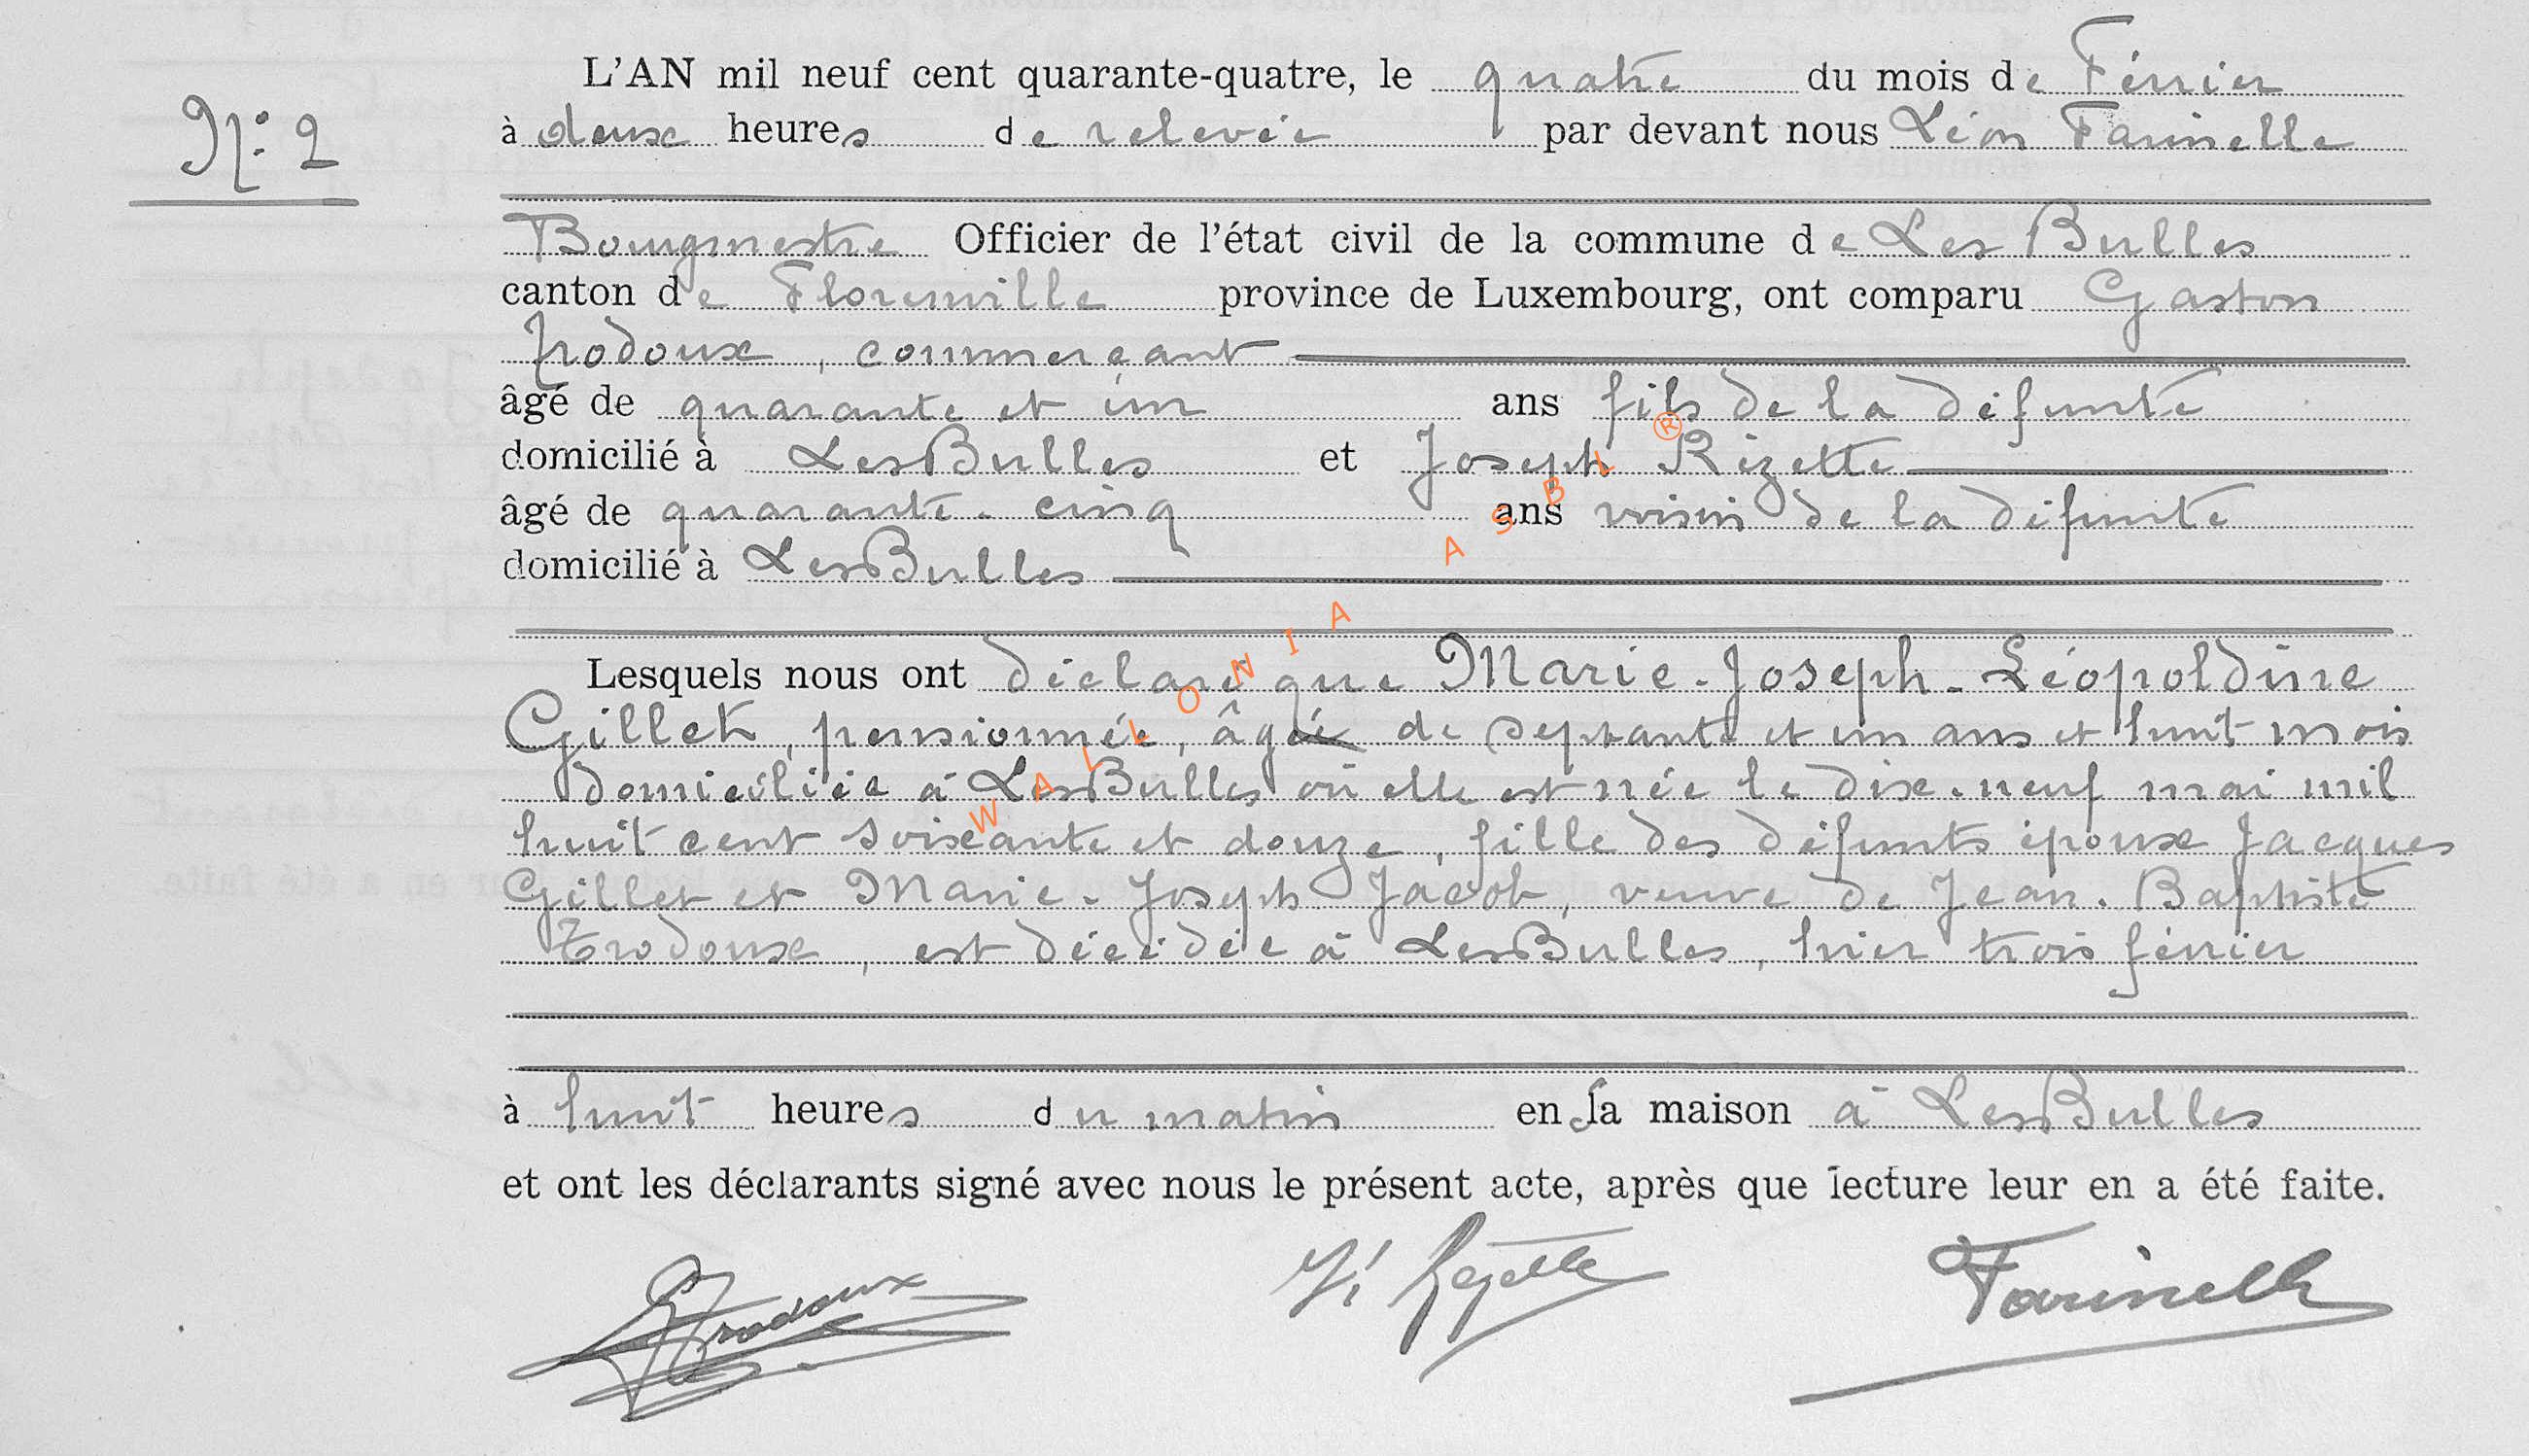 N° 2
L'AN mil neuf cent quarante-quatre, le quatre du mois de Février
à deux heures de relevée par devant nous Léon Farinelle
Bourgmestre Officier de l'état civil de la commune de Les Bulles
canton de Florenville province de Luxembourg, ont comparu Gaston
Trodoux, commerçant
âgé de quarante et un ans fils de la défunte
domicilié à LesBulles et Joseph Rizette
âgé de quarante-cinq ans voisin de la défunte
domicilié à LesBulles
Lesquels nous ont déclaré que Marie-Joseph-Léopoldine
Gillet, pensionnée, âgée de septante et un ans et huit mois
domiciliée à LesBulles où elle est née le dix-neuf mai mil
huit cent soixante et douze, fille des défunts époux Jacques
Gillet et Marie-Joseph Jacob, veuve de Jean-Baptiste
Trodoux, est décédée à LesBulles, hier trois février
à huit heures du matin en sa maison à LesBulles
et ont les déclarants signé avec nous le présent acte, après que lecture leur en a été faite.
GTrodoux J. Rizette Farinelle
WALLONIA ASBL ®